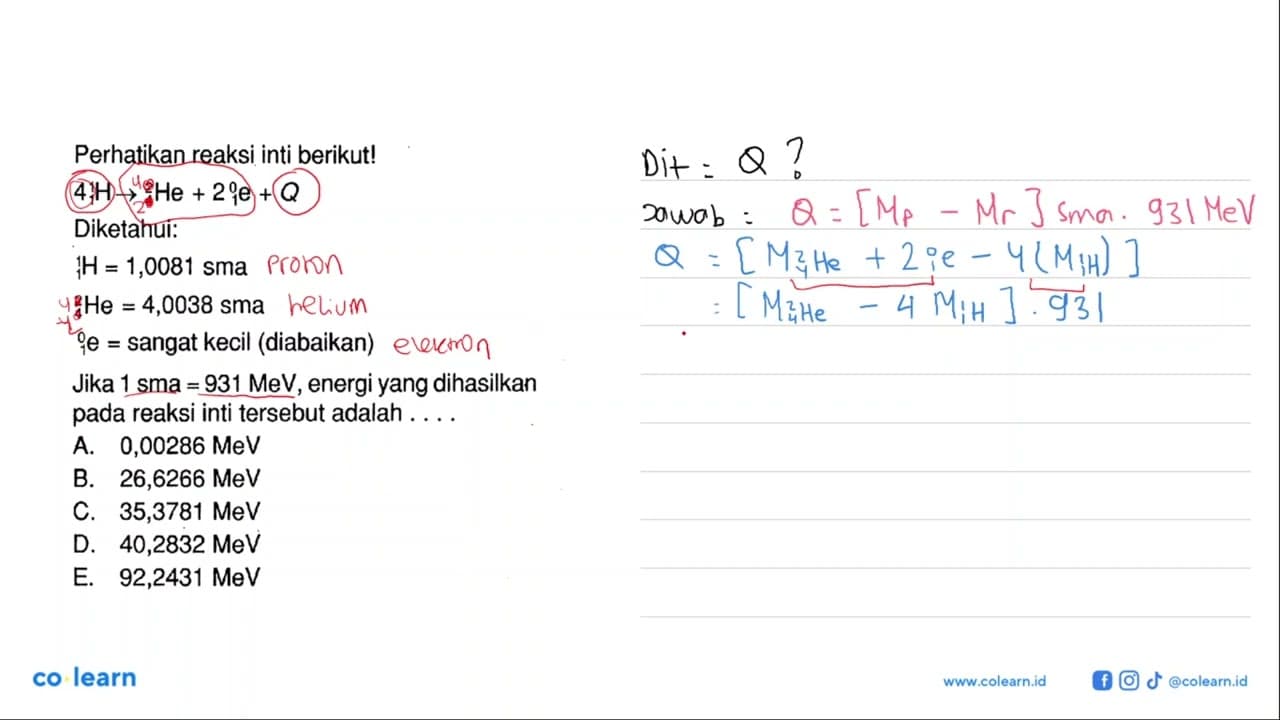 Perhatikan reaksi inti berikut!
4 ¹₁H → ⁴₂He + 2 ⁰₁e + Q
Diketahui:
¹₁H = 1,0081 sma proton
⁴₂He = 4,0038 sma helium
⁰₁e = sangat kecil (diabaikan) elektron
Jika 1 sma = 931 MeV, energi yang dihasilkan
pada reaksi inti tersebut adalah . . . .
A. 0,00286 MeV
B. 26,6266 MeV
C. 35,3781 MeV
D. 40,2832 MeV
E. 92,2431 MeV
Dit = Q ?
Jawab : Q = [Mp - Mr] sma. 931 MeV
Q = [M ²₄He + 2 ⁰₁e - 4(M ¹₁H)]
= [M ²₄He - 4 M ¹₁H] . 931
co learn
www.colearn.id
@colearn.id